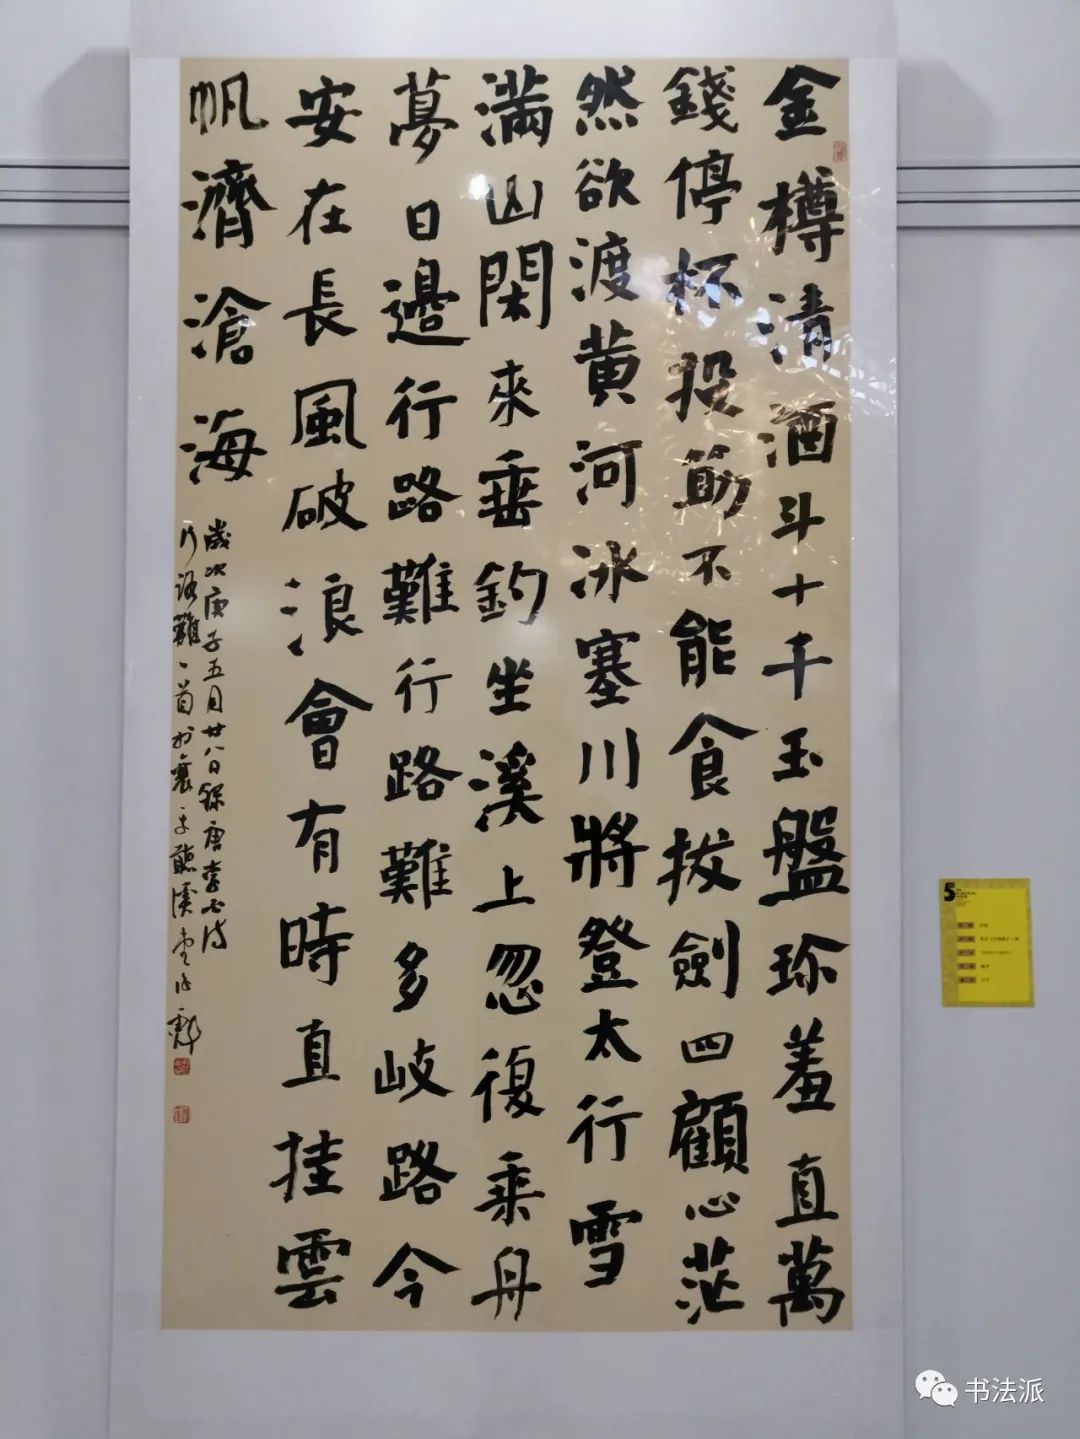 金樽清酒斗十千玉盤珍羞直萬
錢停杯投筯不能食拔劍四顧心茫
然欲渡黄河冰塞川將登太行雪
滿山閑來垂釣坐溪上忽復乘舟
夢日邊行路難行路難多岐路今
安在長風破浪會有時直挂雲
帆濟滄海
歲次庚子五月廿八日錄唐李白詩
行路難一首於襄平聽溪堂
5
书法派